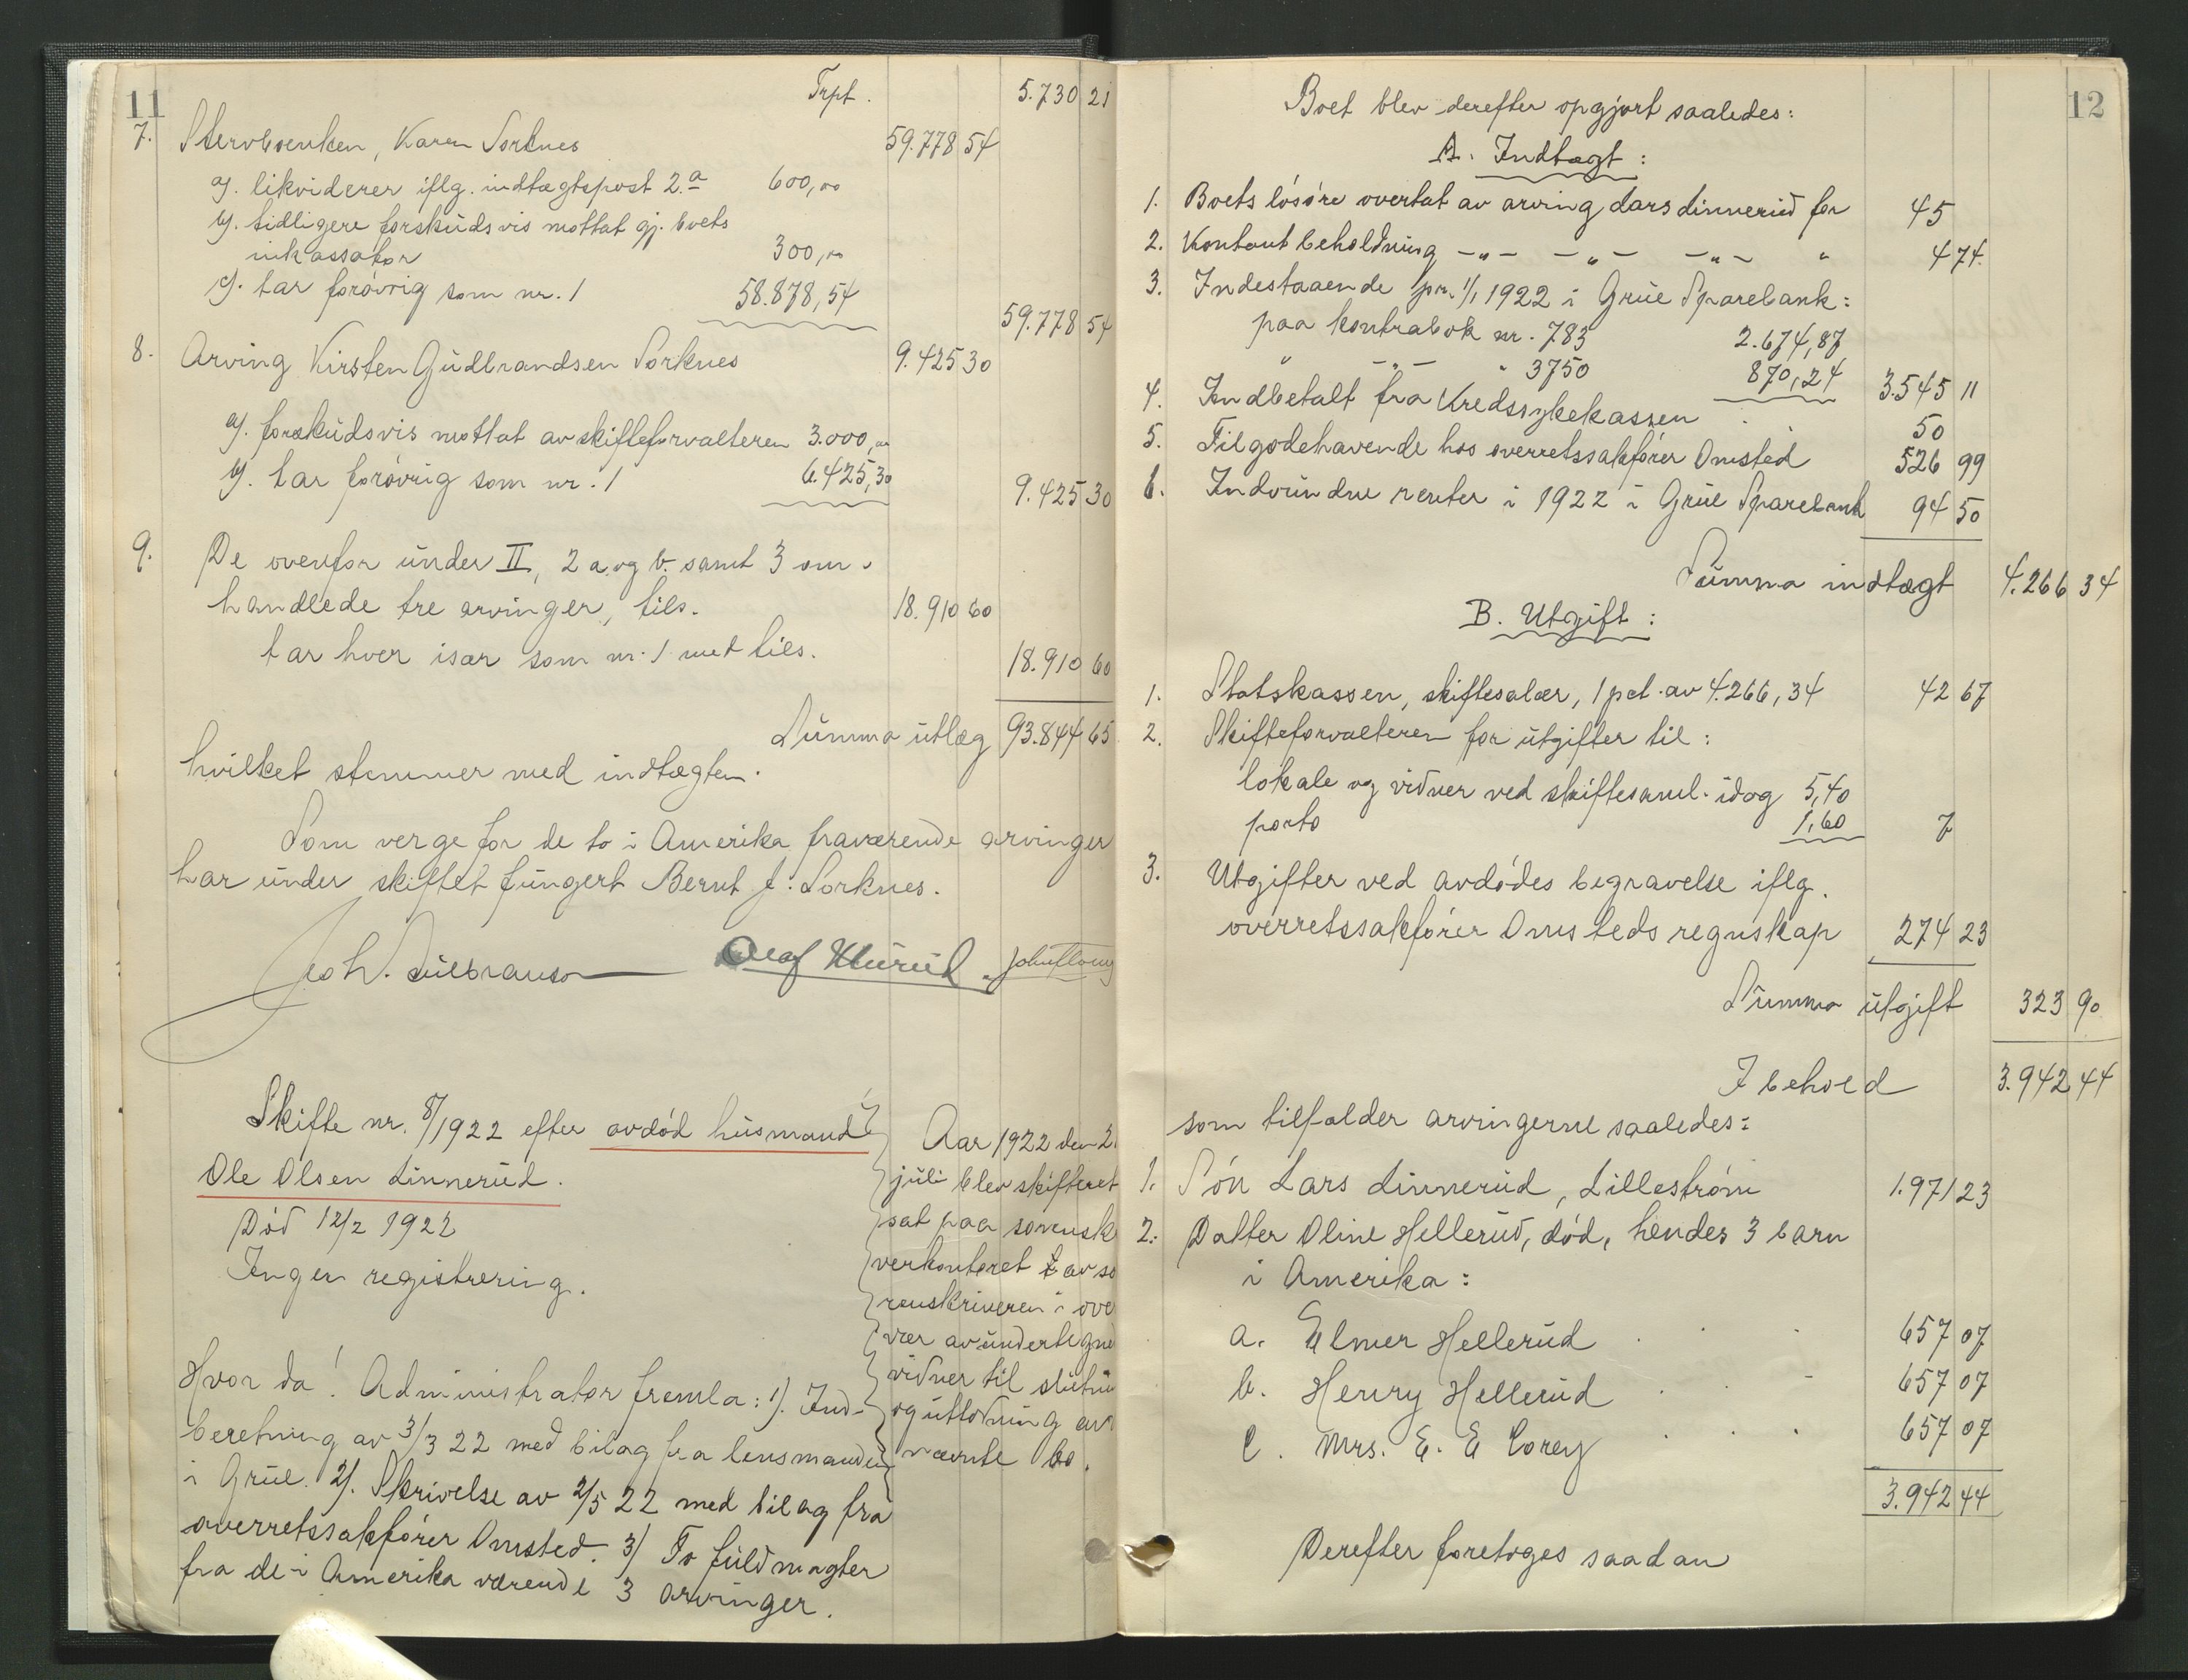 11
Trpt. 5.730 21
7. Stervboenken, Karen Sorknes 59.778 54
a). likviderer iflg. indtægtspost 2.a 600,00
b). tidligere forskudsvis mottat gj. boets
inkassator 300,00
c). tar forøvrig som nr. 1 58.878,54
59.778 54
8. Arving Kirsten Gudbrandsen Sorknes 9.425 30
a). forskudsvis mottat av skifteforvalteren 3.000,00
b). tar forøvrig som nr. 1 6.425,30 9.425 30
9. De ovenfor under II, 2 a og b. samt 3 om-
handlede tre arvinger, tils. 18.910 60
tar hver især som nr. 1 met tils. 18.910 60
Summa utlæg 93.844 65
hvilket stemmer med indtægten.
Som verge for de to i Amerika fraværende arvinger
har under skiftet fungert Bernt J. Sorknes.
Joh.
Olaf
Skifte nr. 8/1922 efter avdød husmand
Ole Olsen Linnerud.
Død 12/2 1922
Ingen registrering.
Aar 1922 den 2
juli blev skifteret
sat paa sorensk
verkontoret av so
renskriveren i ove
vær av undertegne
vidner til slutni
og utlodning av
nævnte bo.
Hvor da! Administrator fremla: 1). Ind-
beretning av 3/3 22 med bilag fra lensmanden
i Grue. 2). Skrivelse av 2/5 22 med bilag fra
overretssakfører Omsted. 3) To fuldmagter
fra de i Amerika værende 3 arvinger.
12
Boet blev derefter opgjort saaledes:
A. Indtægt:
1. Boets løsøre overtat av arving Lars Linnerud for 45
2. Kontant beholdning -"- -"- -"- " 4 74
3. Indestaaende pr. 1/1 1922 i Grue Sparebank:
paa kontrabok nr. 783 2.674,87
" -"- " 3750 870,24 3.545 11
4. Indbetalt fra Kredssykekassen 50
5. Tilgodehavende hos overretssakfører Omsted 526 99
6. Indvundne renter i 1922 i Grue Sparebank 94 50
Summa indtægt 4.266 34
B. Utgift:
1. Statskassen, skiftesalær, 1 pct. av 4.266,34 42 67
2. Skifteforvalteren for utgifter til:
lokale og vidner ved skiftesaml. idag 5,40
porto 1,60 7
3. Utgifter ved avdødes begravelse iflg.
overretssakfører Omsteds regnskap 274 23
Summa utgift 323 90
I behold 3.942 44
som tilfalder arvingerne saaledes:
1. Søn Lars Linnerud, Lillestrøm 1.971 23
2. Datter Oline Hellerud, død, hendes 3 barn
i Amerika:
a. Elmer Hellerud 657 07
b. Henry Hellerud 657 07
c. Mrs. E. E Corey 657 07
3.942 44
Derefter foretoges saadan